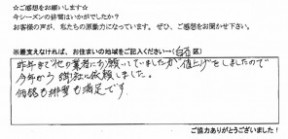 ☆ご感想をお願いします☆
今シーズンの排雪はいかがでしたか?
お客様の声が、私たちの原動力になっています。ぜひ、ご感想をお聞かせ下さい。
※差支えなければ、お住まいの地域をご記入ください→(白石区)
昨年まで他の業者にお願いしていましたが、値上げをしましたので
今年から御社に依頼しました。
価格も排雪も満足です
ご協力ありがとうございました!